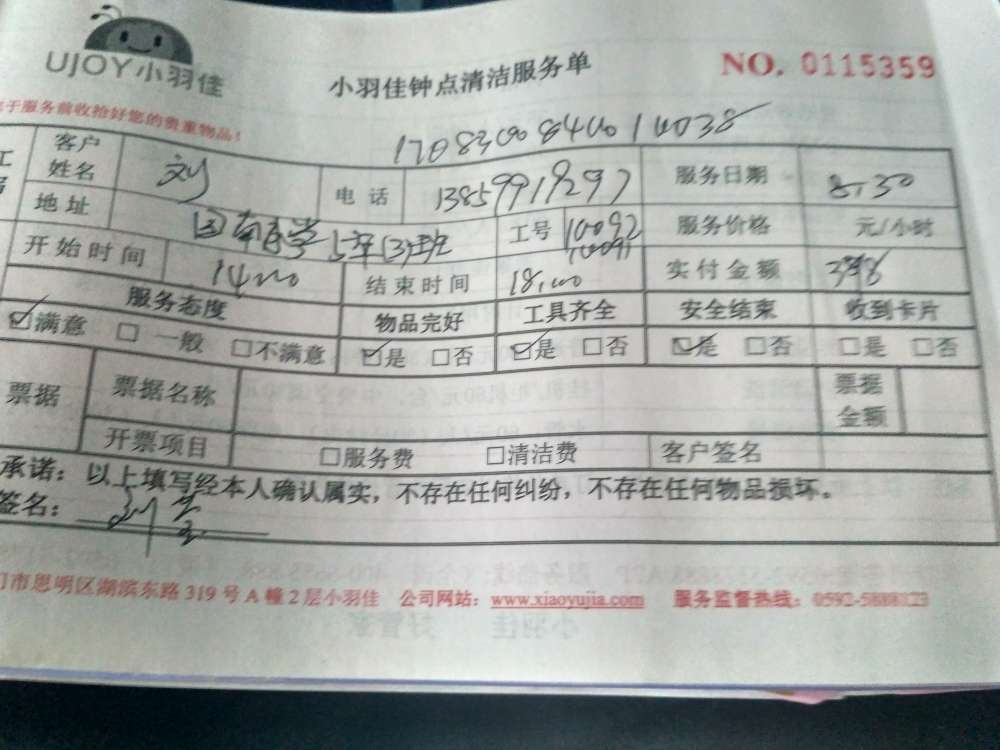 UJOY小羽佳
小羽佳钟点清洁服务单
NO. 0115359
于服务前收拾好您的贵重物品！
客户姓名 刘 电话 13859919297 服务日期 8.30
地址 5年(3)班 工号 10092 10091 服务价格 元/小时
开始时间 14:00 结束时间 18:00 实付金额
服务态度 物品完好 工具齐全 安全结束 收到卡片
☑满意 □一般 □不满意 ☑是 □否 ☑是 □否 ☑是 □否 □是 □否
票据 票据名称 票据金额
开票项目 □服务费 □清洁费 客户签名
承诺：以上填写经本人确认属实，不存在任何纠纷，不存在任何物品损坏。
签名：
门市思明区湖滨东路319号A幢2层小羽佳 公司网站：www.xiaoyujia.com 服务监督热线：0592-5888123